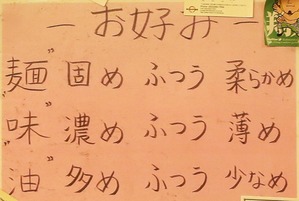 —お好み—
"麺" 固め ふつう 柔らかめ
"味" 濃め ふつう 薄め
"油" 多め ふつう 少なめ